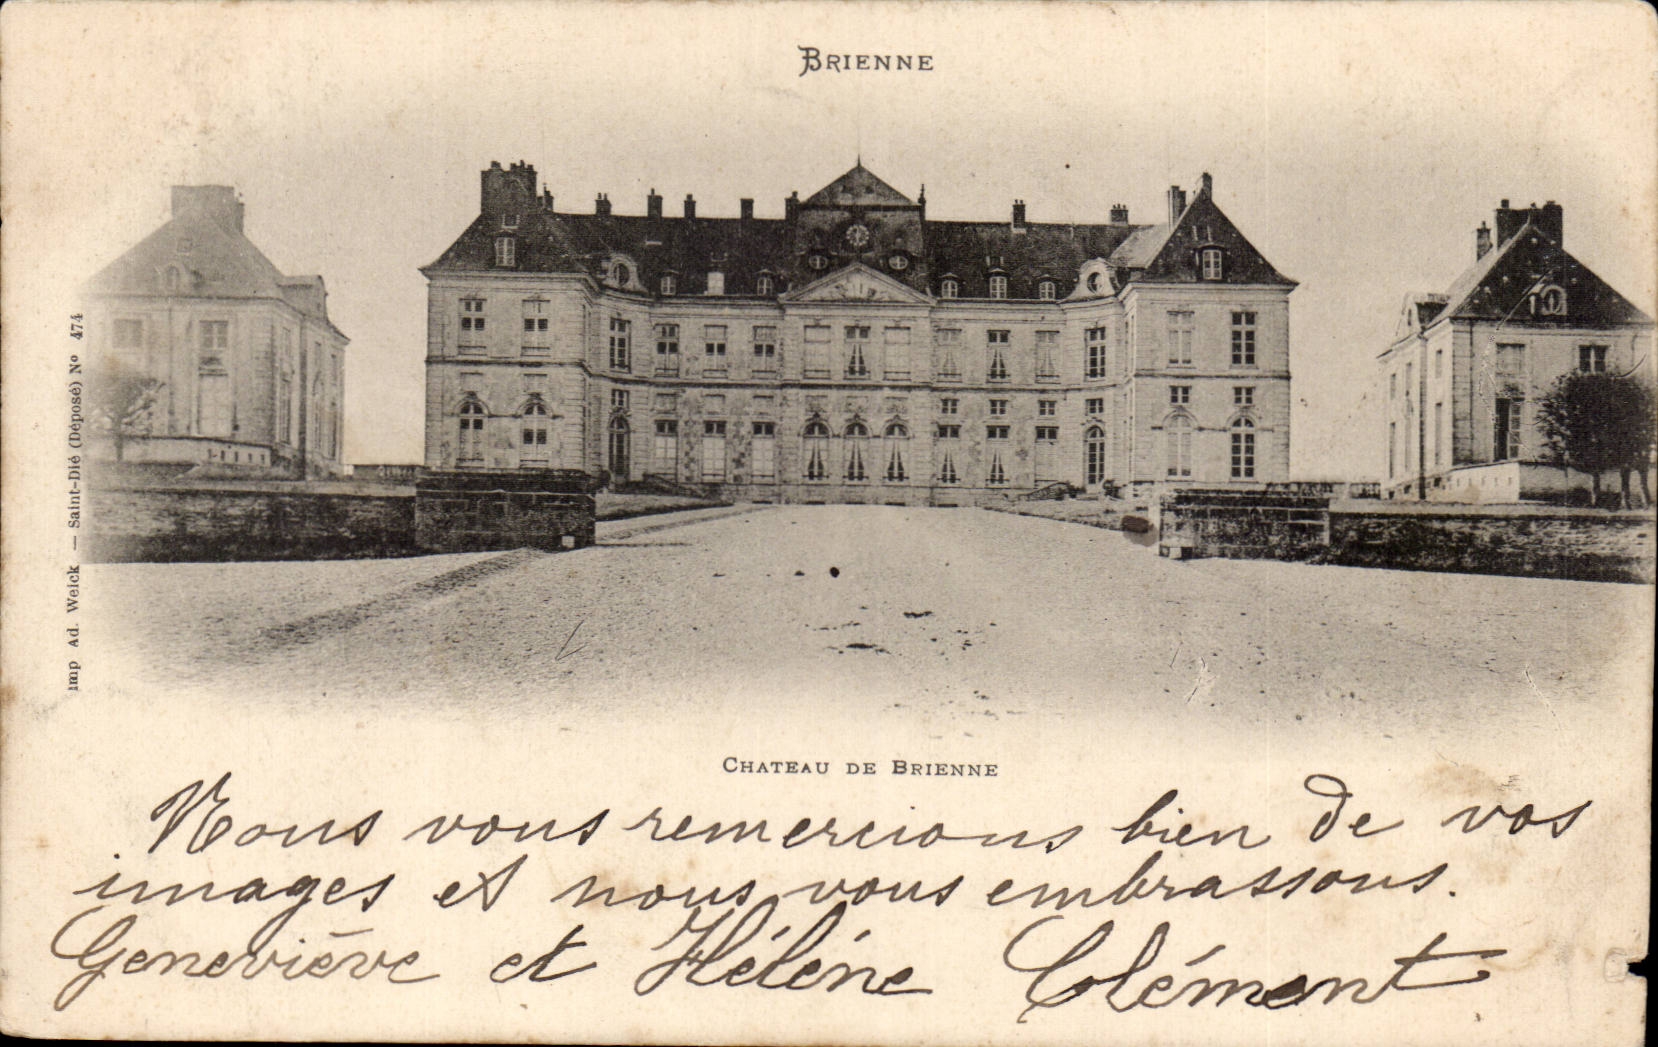 BRIENNE
imp Ad. Weick — Saint-Dié (Déposé) Nº 474
CHATEAU DE BRIENNE
Nous vous remercions bien de vos
images et nous vous embrassons.
Geneviève et Hélène Clément